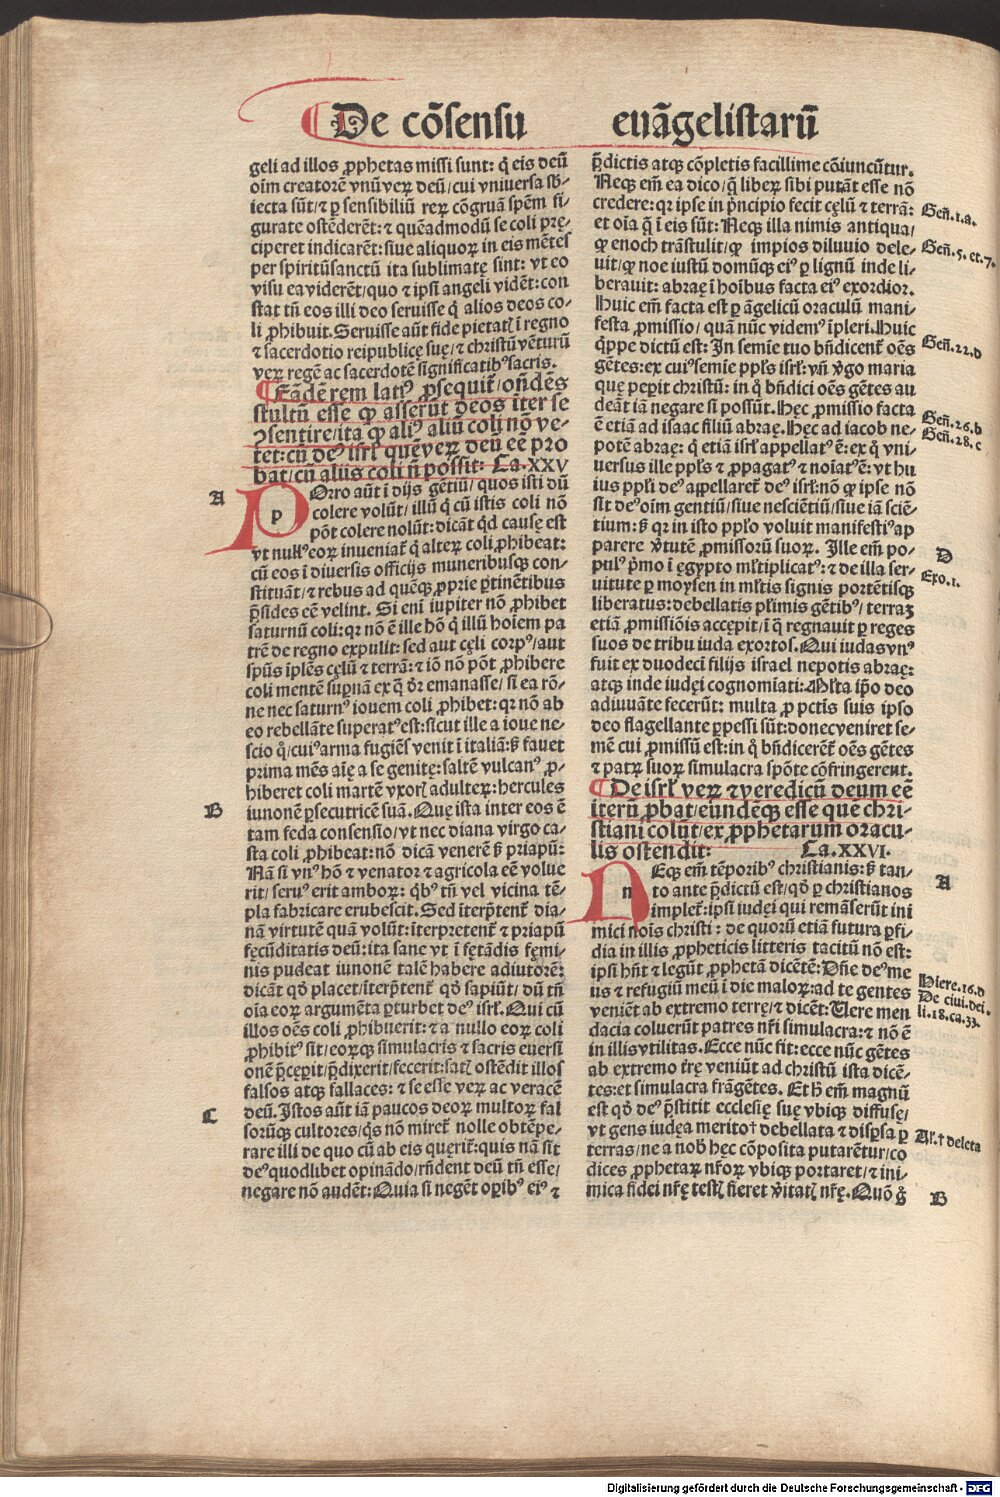 De cõsensu euãgelistarũ
geli ad illos ꝓphetas missi sunt: q̇ eis deũ
oĩm creatorẽ vnũ verꝝ deũ/ cui vniuersa sb-
iecta sũt/ ⁊ ꝑ sensibiliũ rerꝝ cõgruã spẽm fi-
gurate ostẽderẽt: ⁊ quẽadmodũ se coli prę-
ciperet indicarẽt: siue aliquorꝝ in eis mẽtes
per spiritũsanctũ ita sublimatę sint: vt eo
visu ea viderẽt/ quo ⁊ ipsi angeli vidẽt: con
stat tñ eos illi deo seruisse q̇ alios deos co-
li ꝓhibuit. Seruisse aũt fide pietatꝭ ĩ regno
⁊ sacerdotio reipublicę suę/ ⁊ christũ vẽturũ
verꝝ regẽ ac sacerdotẽ significatibꝰ sacris.
¶ Eãdẽ rem latiꝰ ꝓsequit̃/ oñdẽs
stultũ esse ꝙ asserũt deos ĩter se
ↄsentire/ ita ꝙ aliꝰ aliũ coli nõ ve-
tet: cũ deꝰ isrł quẽ verꝝ deũ eẽ pro
bat/ cũ aliis coli ñ possit: Ca. XXV
A
p
POrro aũt ĩ dijs gẽtiũ/ quos isti dũ
colere volũt/ illũ q̇ cũ istis coli nõ
põt colere nolũt: dicãt q̇d causę est
vt nullꝰ eorꝝ inueniat̃ q̇ alterꝝ coli ꝓhibeat:
cũ eos ĩ diuersis officijs muneribusqꝫ con-
stituãt/ ⁊ rebus ad quẽqꝫ ꝓprie ꝑtinẽtibus
p̃sides eẽ velint. Si enĩ iupiter nõ ꝓhibet
saturnũ coli: qꝛ nõ ẽ ille hõ q̇ illũ hoĩem pa
trẽ de regno expulit: sed aut cęli corpꝰ/ aut
spũs ĩplẽs cęlũ ⁊ terrã: ⁊ iõ nõ põt ꝓhibere
coli mentẽ supnã ex q̃ dr̃ emanasse/ si ea rõ-
ne nec saturnꝰ iouem coli ꝓhibet: qꝛ nõ ab
eo rebellãte superatꝰ est: sicut ille a ioue ne-
scio q̊/ cuiꝰ arma fugiẽs venit ĩ italiã: ß fauet
prima mẽs aĩę a se genitę: saltẽ vulcanꝰ ꝓ-
hiberet coli martẽ vxorꝭ adulterꝝ: hercules
B
iunonẽ ꝑsecutricẽ suã. Quę ista inter eos ẽ
tam feda consensio/ vt nec diana virgo ca-
sta coli ꝓhibeat: nõ dicã venerẽ ß priapũ:
Nã si vnꝰ hõ ⁊ venator ⁊ agricola eẽ volue
rit/ seruꝰ erit amborꝝ: q̇bꝰ tñ vel vicina tẽ-
pla fabricare erubescit. Sed ĩterp̃tent̃ dia-
nã virturẽ quã volũt: ĩterpretent̃ ⁊ priapũ
fęcũditatis deũ: ita sane vt ĩ fętãdis fęmi-
nis pudeat iunonẽ talẽ habere adiutorẽ:
dicãt qð placet/ ĩterp̃tent̃ qð sapiũt/ dũ tñ
oĩa eorꝝ argumẽta ꝑturbet deꝰ isrł. Qui cũ
illos oẽs coli ꝓhibuerit: ⁊ a nullo eorꝝ coli
ꝓhibitꝰ sit/ eorꝝqꝫ simulacris ⁊ sacris euersi
onẽ p̃cępit/ p̃dixerit/ fecerit: satꝭ ostẽdit illos
falsos atqꝫ fallaces: ⁊ se esse verꝝ ac veracẽ
C
deũ. Istos aũt iã paucos deorꝝ multorꝝ fal
sorũqꝫ cultores/ q̇s nõ miret̃ nolle obtẽpe-
rare illi de quo cũ ab eis querit̃: quis nã sit
deꝰ quodlibet opinãdo/ rñdent deũ tñ esse/
negare nõ audẽt: Quia si negẽt oꝑibꝰ eiꝰ ⁊
p̃dictis atqꝫ cõpletis facillime cõiuncũtur.
Neqꝫ em̃ ea dico/ q̃ liberꝝ sibi putãt esse nõ
credere: qꝛ ipse in p̃ncipio fecit cęlũ ⁊ terrã:
Geñ. 1. a.
et oĩa q̃ ĩ eis sũt: Neqꝫ illa nimis antiqua/
ꝙ enoch trãstulit/ ꝙ impios diluuio dele-
Geñ. 5. et. 7.
uit/ ꝙ noe iustũ domũqꝫ eiꝰ ꝑ lignũ inde li-
berauit: abraę ĩ hoĩbus facta eiꝰ exordior.
Huic em̃ facta est ꝑ ãgelicũ oraculũ mani-
festa ꝓmissio/ quã nũc videmꝰ ĩpleri. Huic
q̇ppe dictũ est: In semĩe tuo bñdicent̃ oẽs
Geñ. 22. d
gẽtes: ex cuiꝰ semĩe ppl̃s isrł: vñ v̇go maria
quę peperit christũ: in q̊ bñdici oẽs gẽtes au
deãt iã negare si possũt. Hęc ꝓmissio facta
ẽ etiã ad isaac filiũ abraę. Hęc ad iacob ne-
Geñ. 26. b
Geñ. 28. c
potẽ abraę: q̇ etiã isrł appellatꝰ ẽ: ex q̊ vni-
uersus ille ppl̃s ⁊ ꝓpagatꝰ ⁊ noĩatꝰ ẽ: vt hu
ius ppl̃i deꝰ appellaret̃ deꝰ isrł: nõ ꝙ ipse nõ
sit deꝰ oĩm gentiũ/ siue nesciẽtiũ/ siue iã sciẽ-
tium: ß qꝛ in isto ppl̃o voluit manifestiꝰ ap
parere v̇tutẽ ꝓmissorũ suorꝝ. Ille em̃ po-
D
pulꝰ p̃mo ĩ ęgypto ml̃tiplicatꝰ: ⁊ de illa ser-
Exo. 1.
uitute ꝑ moysen in ml̃tis signis portẽtisqꝫ
liberatus: debellatis pl̃imis gẽtibꝰ/ terraꝫ
etiã ꝓmissiõis accępit/ ĩ q̃ regnauit ꝑ reges
suos de tribu iuda exortos. Qui iudas vnꝰ
fuit ex duodecĩ filijs israel nepotis abraę:
atqꝫ inde iudęi cognomĩati: Ml̃ta ip̃o deo
adiuuãte fecerũt: multa ꝓ pctĩs suis ipso
deo flagellante ꝑpessi sũt: donec veniret se-
mẽ cui ꝓmissũ est: in q̊ bñdicerẽt̃ oẽs gẽtes
⁊ patrꝝ suorꝝ simulacra spõte cõfringerent.
¶ De isrł verꝝ ⁊ veredicũ deum eẽ
iterũ ꝓbat/ eundẽqꝫ esse quẽ chri-
stiani colũt/ ex ꝓphetarum oracu-
lis ostendit: Ca. XXVI.
n
NEqꝫ em̃ tẽporibꝰ christianis: ß tan-
A
to ante p̃dictũ est/ qð ꝑ christianos
implet̃: ipsi iudęi qui remãserũt ini
mici nõis christi: de quorũ etiã futura ꝑfi-
dia in illis ꝓpheticis litteris tacitũ nõ est:
ipsi hñt ⁊ legũt ꝓphetã dicẽtẽ: Dñe deꝰ me
us ⁊ refugiũ meũ ĩ die malorꝝ: ad te gentes
Hiere. 16. d
De ciui. dei.
li. 18. ca. 33.
veniẽt ab extremo terrę/ ⁊ dicẽt: Uere men
dacia coluerũt patres nr̃i simulacra: ⁊ nõ ẽ
in illis vtilitas. Ecce nũc fit: ecce nũc gẽtes
ab extremo tr̃ę veniũt ad christũ ista dicẽ-
tes: et simulacra frãgẽtes. Et h̃ em̃ magnũ
est qð deꝰ p̃stitit ecclesię suę vbiqꝫ diffusę/
vt gens iudęa merito† debellata ⁊ disꝑsa ꝑ
Al'.† deleta
terras/ ne a nob̃ hęc cõposita putarẽtur/ co
dices ꝓphetarꝝ nr̃orꝝ vbiqꝫ portaret/ ⁊ ini-
mica fidei nr̃ę testꝭ fieret v̇itatꝭ nr̃ę. Quõ g̊
B
Digitalisierung gefördert durch die Deutsche Forschungsgemeinschaft - DFG